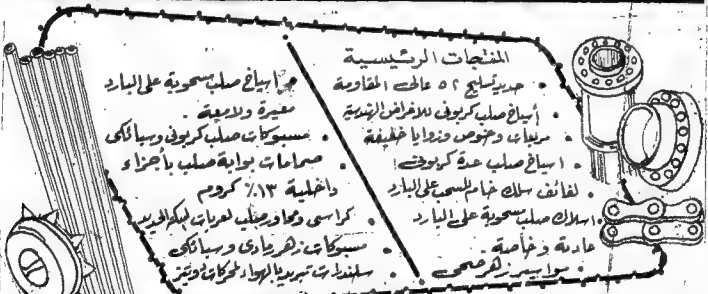 المنتجات الرئيسية
• حديد تسليح ٥٢ عالى المقاومة
• أسياخ صلب كربونى للاغراض الهندسية
• مربعات وخوص وزوايا خفيفة
• اسياخ صلب عدة كربونى
• لفائف سلك خام للسحب على البارد
• اسلاك صلب مسحوبة على البارد
عادية وخاصة .
• مواسير زهر صحى
• اسياخ صلب مسحوبة على البارد
مغيرة ولامعة .
• مسبوكات صلب كربونى وسبائكى
• صمامات بوابة صلب بأجزاء
داخلية ١٣٪ كروم
• كراسى ومحاور صلب لعربات السكك الحديد
• مسبوكات زهر عادى وسبائكى
• سلندرات تبريد بالهواء لمحركات دويتز